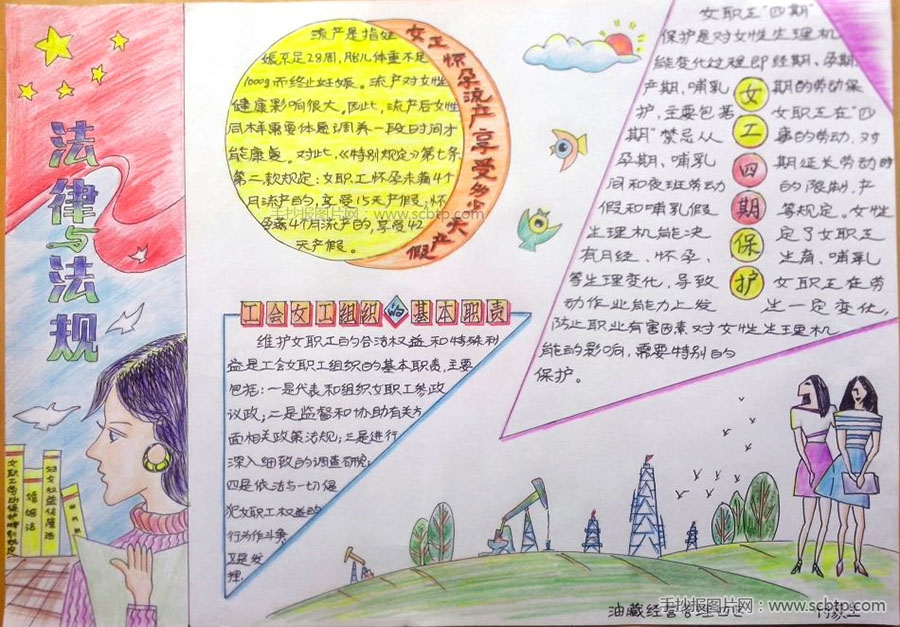 法律与法规
女职工劳动保护特别规定
婚姻法
妇女权益保障法
女工怀孕流产享受多少天产假
流产是指妊
娠不足28周,胎儿体重不足
1000g而终止妊娠。流产对女性
健康影响很大。因此,流产后女性
同样需要休息调养一段时间才
能康复。对此,《特别规定》第七条
第二款规定:女职工怀孕未满4个
月流产的,享受15天产假;怀
孕满4个月流产的,享受42
天产假。
手抄报图片网:www.scbtp.com
女工四期保护
女职工“四期”
保护是对女性生理机
能变化过程即经期、孕期、
产期、哺乳期的劳动保
护,主要包括女职工在“四
期”禁忌从事的劳动,对
孕期、哺乳期延长劳动时
间和夜班劳动的限制,产
假和哺乳假等规定。女性
生理机能决定了女职工
有月经、怀孕、生育、哺乳
等生理变化,导致女职工在劳
动作业能力上发生一定变化,
防止职业有害因素对女性生理机
能的影响,需要特别的
保护。
工会女工组织的基本职责
维护女职工的合法权益和特殊利
益是工会女职工组织的基本职责,主要
包括:一是代表和组织女职工参政
议政;二是监督和协助有关方
面相关政策法规;三是进行
深入细致的调查研究;
四是依法与一切侵
犯女职工权益的
行为作斗争,
手抄报图片网:www.scbtp.com
油藏经营管理